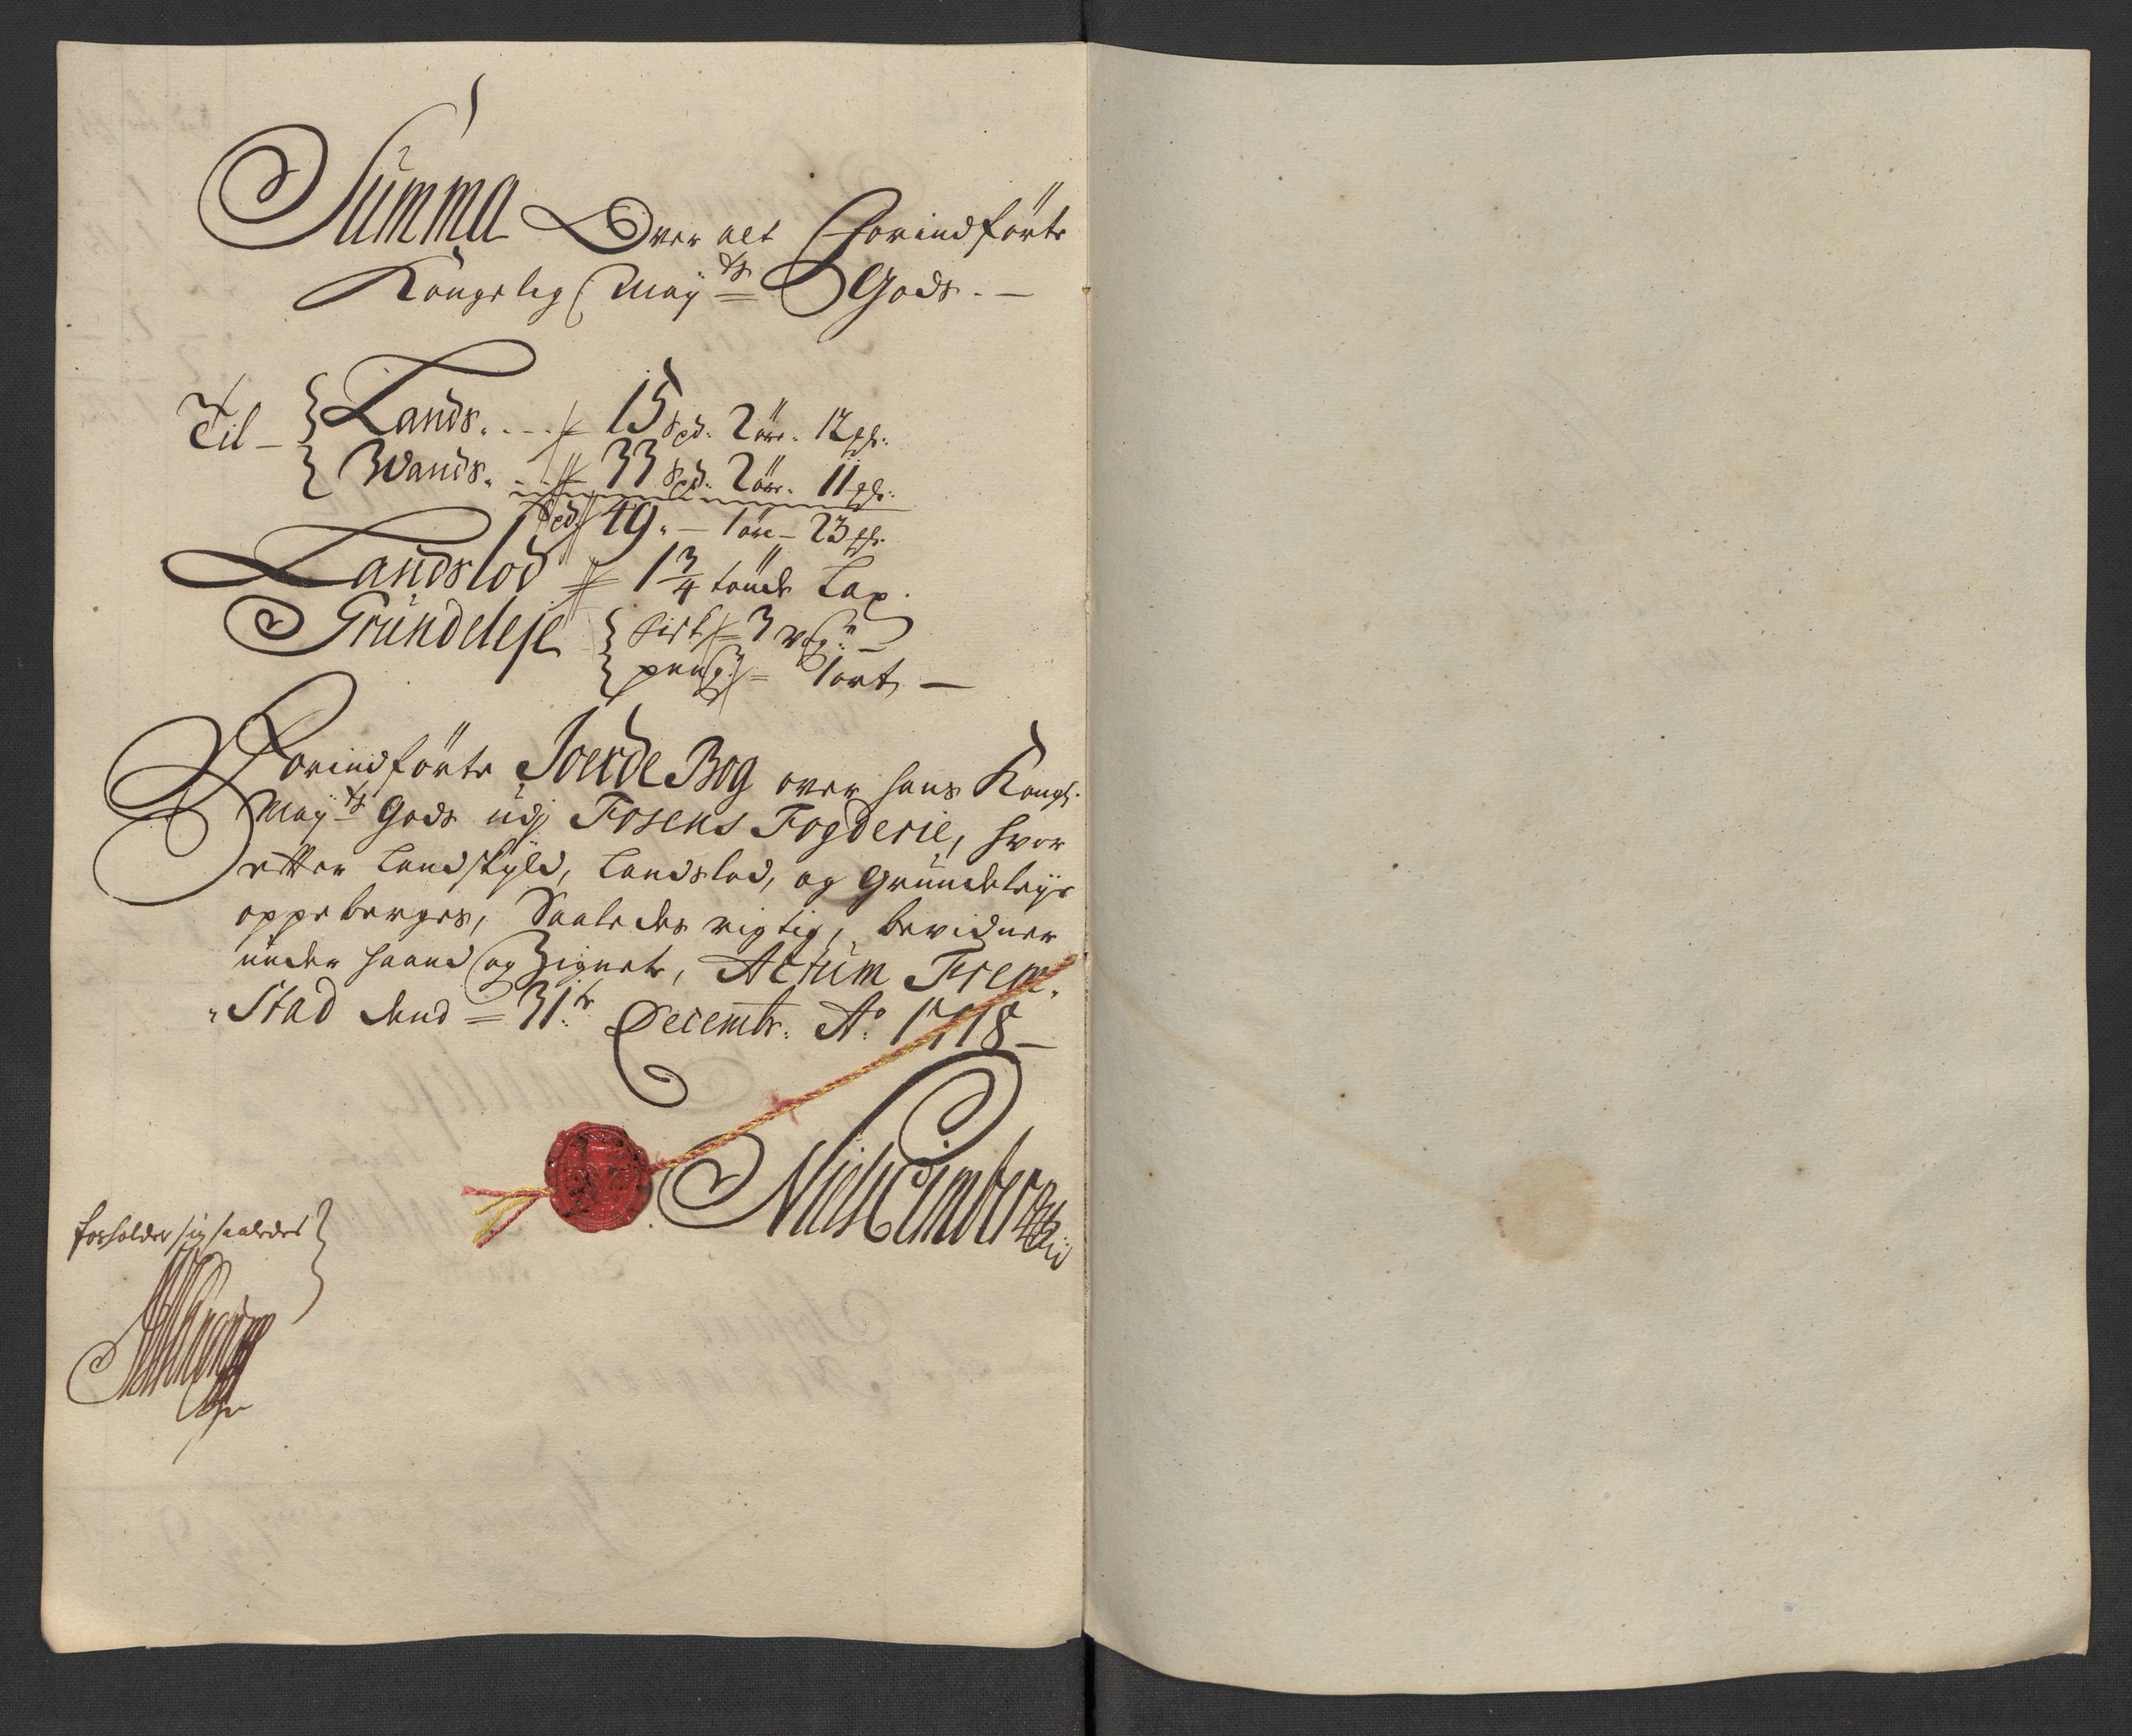 Summa Over alt Forindförte
Kongelig May:ts Gods. —
Til — Lands. . . . 15 Spd: 2 öre. 12 ps:
Wands. . . 33 Spd: 2 öre. 11 ps:
Spd 49. — 1 öre — 23 ps:
Landslod 1 3/4 tönde Lax.
Grundeleje Fisk = 3 wog:r —
peng: = 1 ort, —
Forindförte Joerde Bog over hans Kongl:
May:ts Gods udj Fosens Fogderie, hvor
effter Landskyld, Landslod, og Grundeleye
oppeberges, Saaledes rigtig, bevidner
under haand og Zignete, Actum Frem,
„Stad dend = 31:te Decembr: A:o 1718 —
forholder sig saaledes